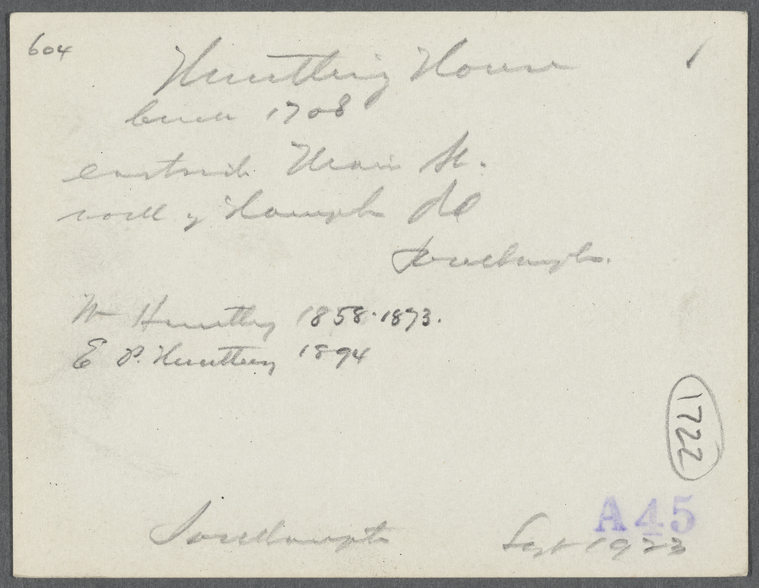 604
Huntting House
built 1708
east side Main St.
north of Hampton Rd
Southampton.
Wm Huntting 1858-1873.
E P. Huntting 1894
1722
A45
Southampton Sept 1922